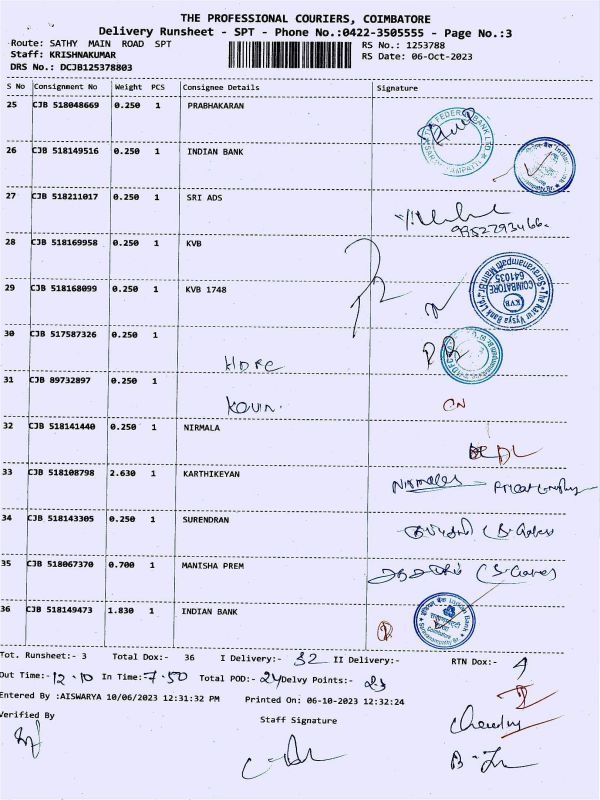 THE PROFESSIONAL COURIERS, COIMBATORE
Delivery Runsheet - SPT - Phone No.:0422-3505555 - Page No.:3
Route: SATHY MAIN ROAD SPT
RS No.: 1253788
Staff: KRISHNAKUMAR
RS Date: 06-Oct-2023
DRS No.: DCJB125378803
S No Consignment No Weight PCS Consignee Details Signature
25 CJB 518048669 0.250 1 PRABHAKARAN
26 CJB 518149516 0.250 1 INDIAN BANK
27 CJB 518211017 0.250 1 SRI ADS
9952793466
28 CJB 518169958 0.250 1 KVB
29 CJB 518168099 0.250 1 KVB 1748
The Karur Vysya Bank Ltd. Saravanampatti Main Br. KVB COIMBATORE 641035
30 CJB 517587326 0.250 1
HDFC
31 CJB 89732897 0.250 1
KOVIN.
CN
32 CJB 518141440 0.250 1 NIRMALA
DL
33 CJB 518108798 2.630 1 KARTHIKEYAN
Nirmala
34 CJB 518143305 0.250 1 SURENDRAN
35 CJB 518067370 0.700 1 MANISHA PREM
36 CJB 518149473 1.830 1 INDIAN BANK
Tot. Runsheet:- 3 Total Dox:- 36 I Delivery:- 32 II Delivery:- RTN Dox:- 4
Out Time:- 12.10 In Time:- 7.50 Total POD:- 24 Delvy Points:- 23
Entered By :AISWARYA 10/06/2023 12:31:32 PM Printed On: 06-10-2023 12:32:24
Verified By
Staff Signature